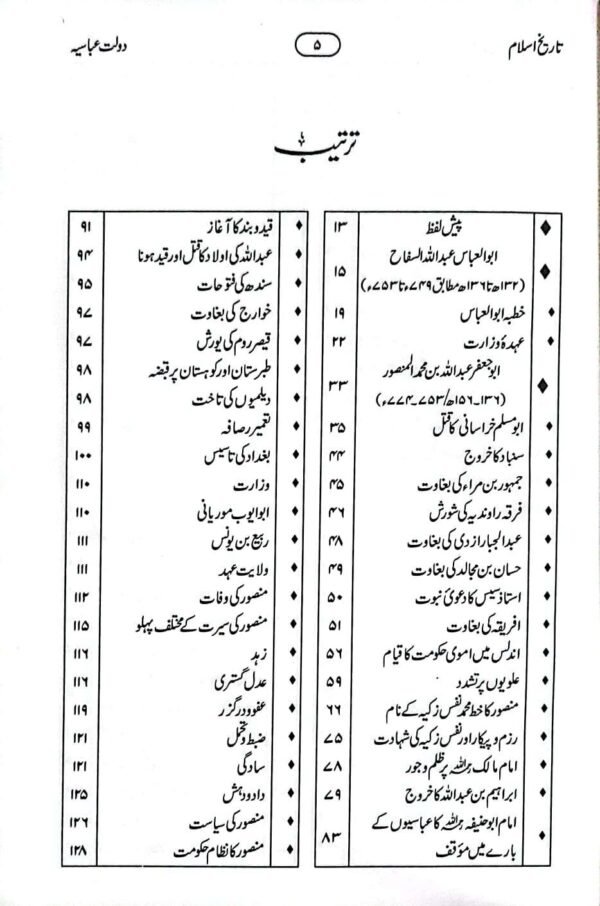 تاریخ اسلام ۵ دولت عباسیہ
ترتیب
پیش لفظ ۱۳
ابوالعباس عبداللہ السفاح
(۱۳۲ھ تا ۱۳۶ھ مطابق ۷۴۹ء تا ۷۵۳ء) ۱۵
خطبہ ابوالعباس ۱۹
عہدۂ وزارت ۲۲
ابوجعفر عبداللہ بن محمد المنصور
(۱۳۶۔۱۵۶ھ/۷۵۳۔۷۷۴ء) ۳۳
ابو مسلم خراسانی کا قتل ۳۵
سنباد کا خروج ۴۴
جمہور بن مراء کی بغاوت ۴۵
فرقہ راوندیہ کی شورش ۴۶
عبدالجبار ازدی کی بغاوت ۴۸
حسان بن مجالد کی بغاوت ۴۹
استاذ سیس کا دعویٔ نبوت ۵۰
افریقہ کی بغاوت ۵۱
اندلس میں اموی حکومت کا قیام ۵۶
علویوں پر تشدد ۵۹
منصور کا خط محمد نفس زکیہ کے نام ۶۶
رزم و پیکار اور نفس زکیہ کی شہادت ۷۵
امام مالک رحمہ اللہ پر ظلم و جور ۷۸
ابراہیم بن عبداللہ کا خروج ۷۹
امام ابوحنیفہ رحمہ اللہ کا عباسیوں کے
بارے میں مؤقف ۸۳
قید و بند کا آغاز ۹۱
عبداللہ کی اولاد کا قتل اور قید ہونا ۹۴
سندھ کی فتوحات ۹۵
خوارج کی بغاوت ۹۷
قیصر روم کی یورش ۹۷
طبرستان اور کوہستان پر قبضہ ۹۸
دیلمیوں کی تاخت ۹۸
تعمیر رصافہ ۹۹
بغداد کی تاسیس ۱۰۰
وزارت ۱۱۰
ابو ایوب موریانی ۱۱۰
ربیع بن یونس ۱۱۱
ولایت عہد ۱۱۱
منصور کی وفات ۱۱۲
منصور کی سیرت کے مختلف پہلو ۱۱۵
زہد ۱۱۶
عدل گستری ۱۱۶
عفو و درگزر ۱۱۹
ضبط و تحمل ۱۲۱
سادگی ۱۲۱
داد و دہش ۱۲۵
منصور کی سیاست ۱۲۶
منصور کا نظام حکومت ۱۲۸